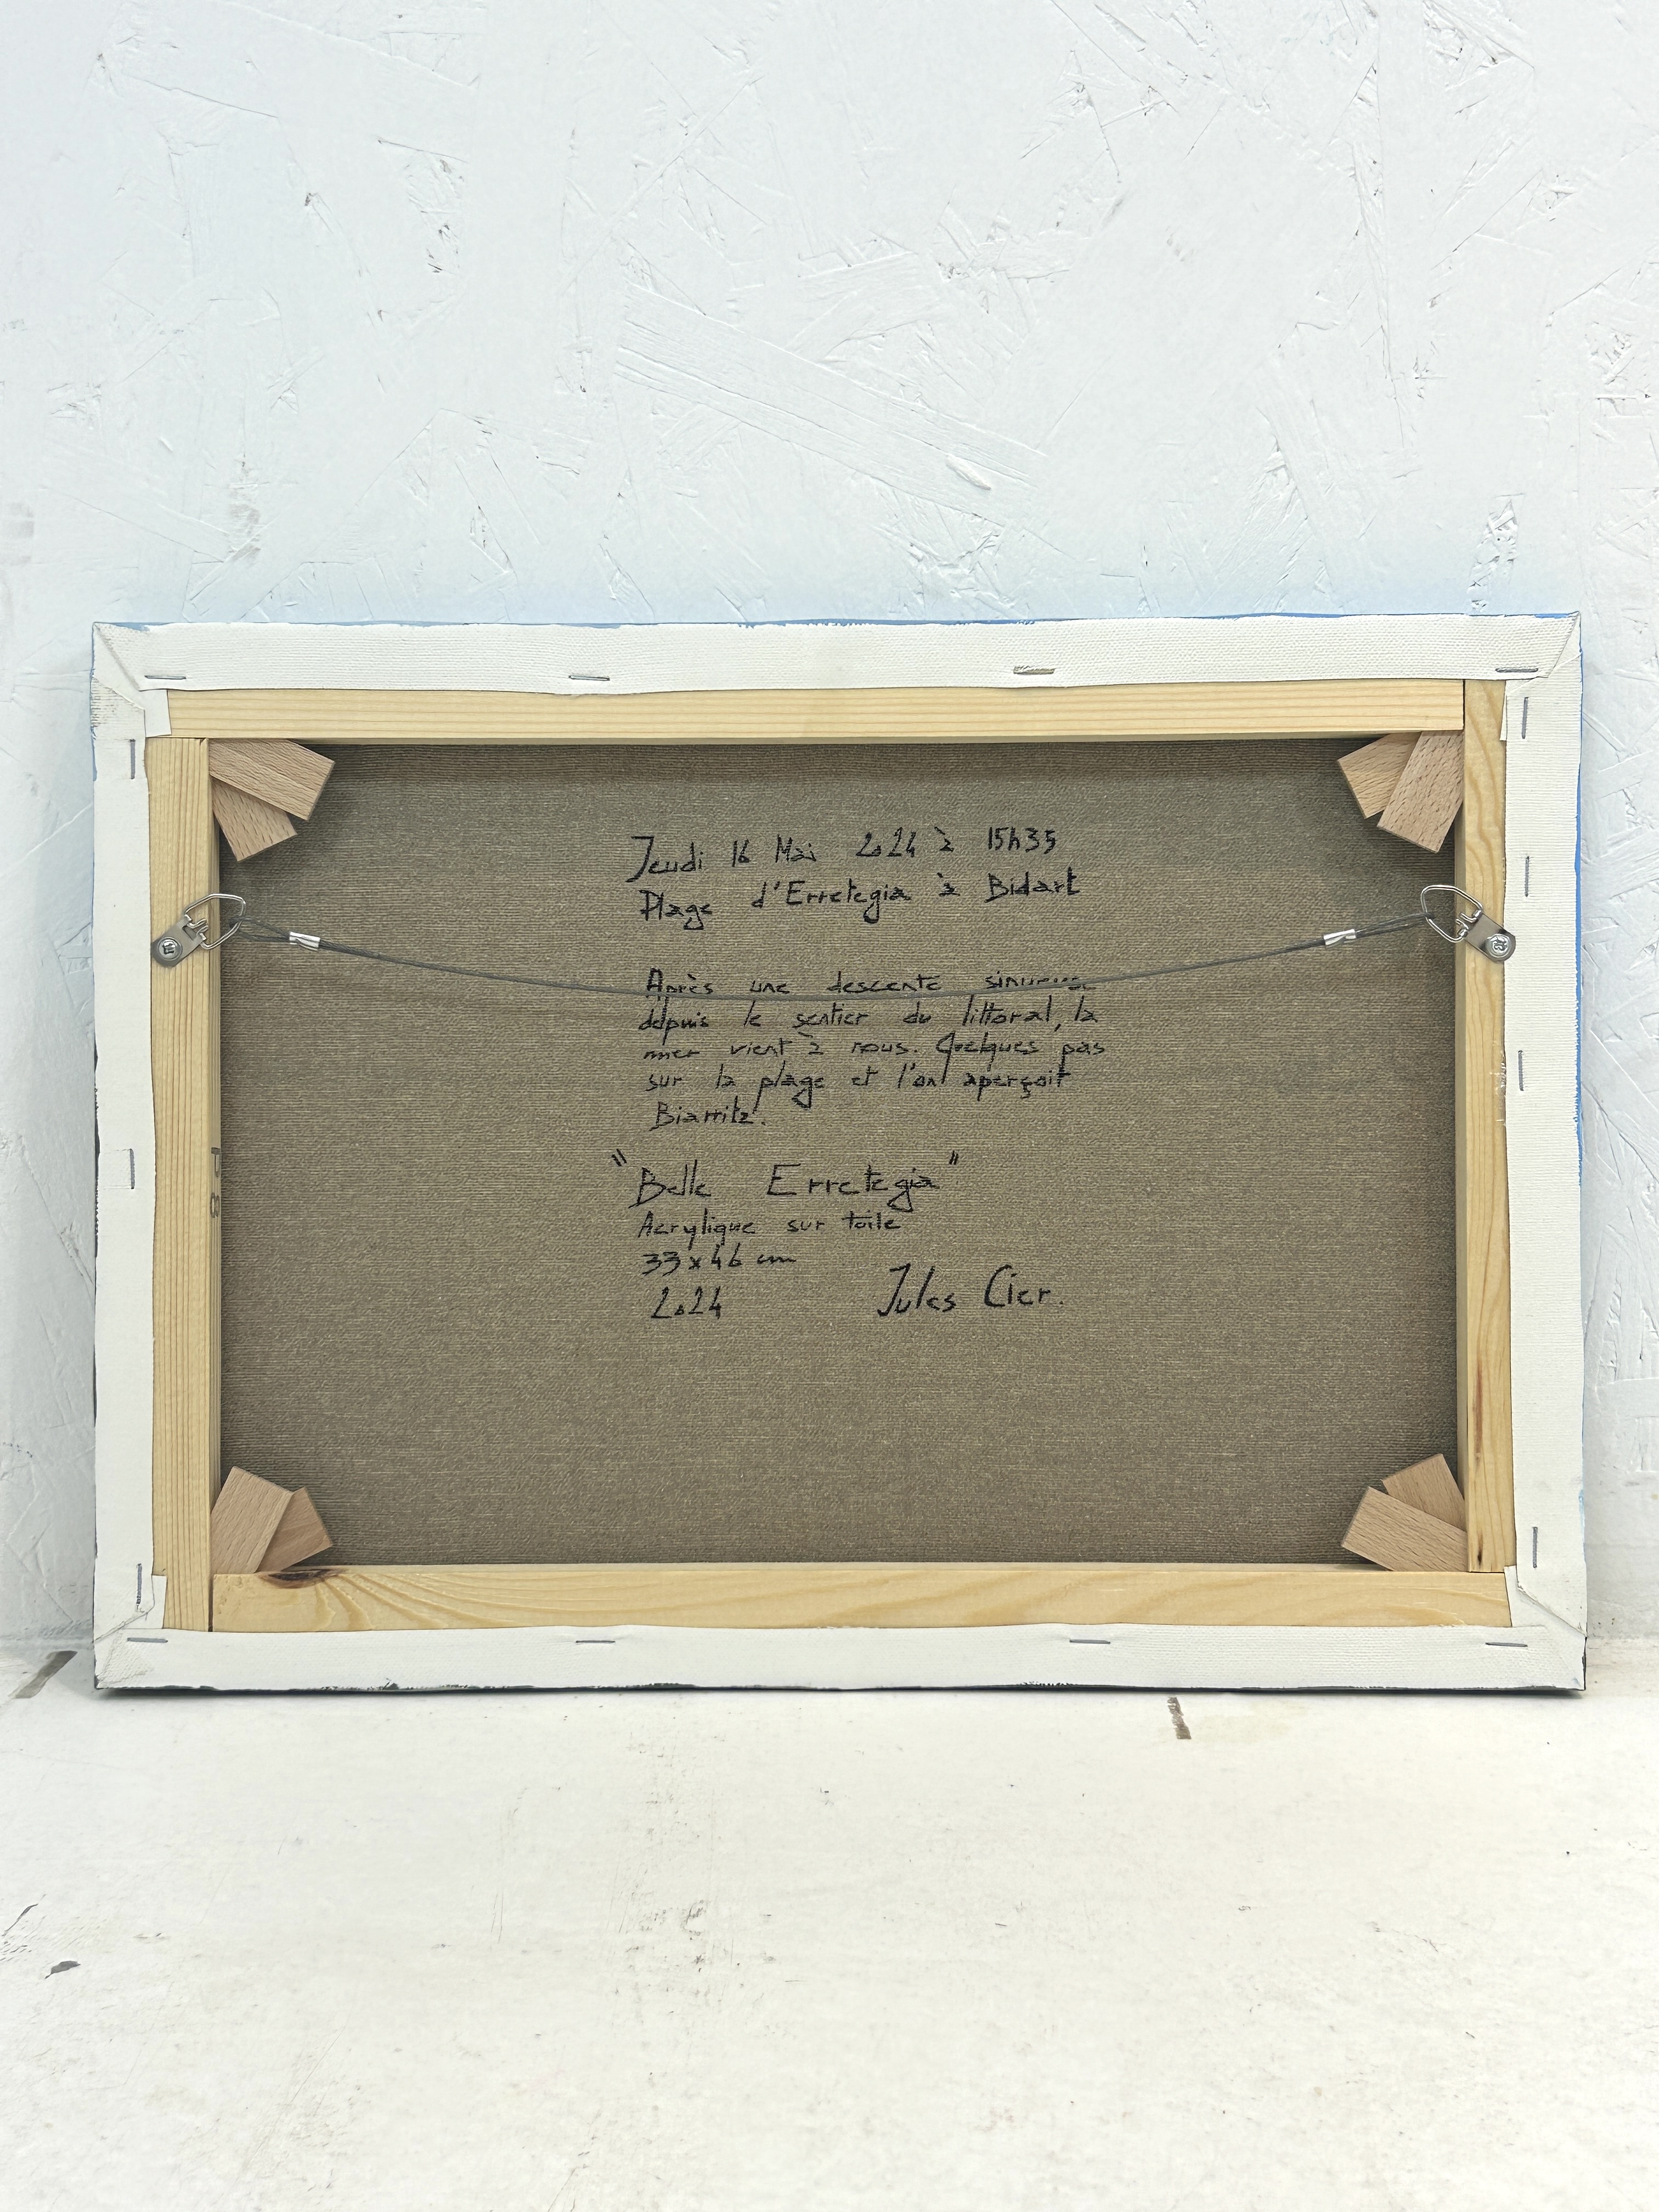 Jeudi 16 Mai 2024 à 15h35
Plage d'Erretegia à Bidart
Après une descente sinueuse
depuis le sentier du littoral, la
mer vient à nous. Quelques pas
sur la plage et l'on aperçoit
Biarritz.
"Belle Erretegia"
Acrylique sur toile
33x46 cm
2024 Jules Cier.
P8